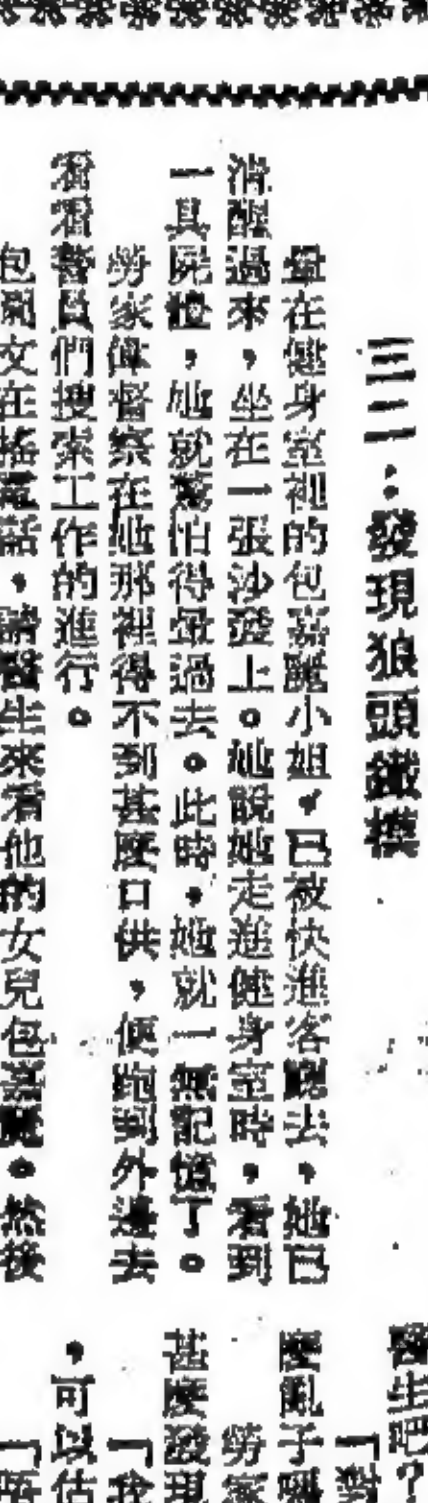 三二：發現狼頭鐵模
暈在健身室裡的包嘉麗小姐，已被快進客廳去，她已
清醒過來，坐在一張沙發上。她說她走進健身室時，看到
一具屍體，她就驚怕得暈過去。此時，她就一無記憶了。
勞家偉督察在她那裡得不到甚麼口供，便跑到外邊去
看看警員們搜索工作的進行。
包爾文在搖電話，請醫生來看他的女兒包嘉麗。然後
醫生吧？
「對
麼亂子嗎
勞家
甚麼發現
「我
，可以估
「唔